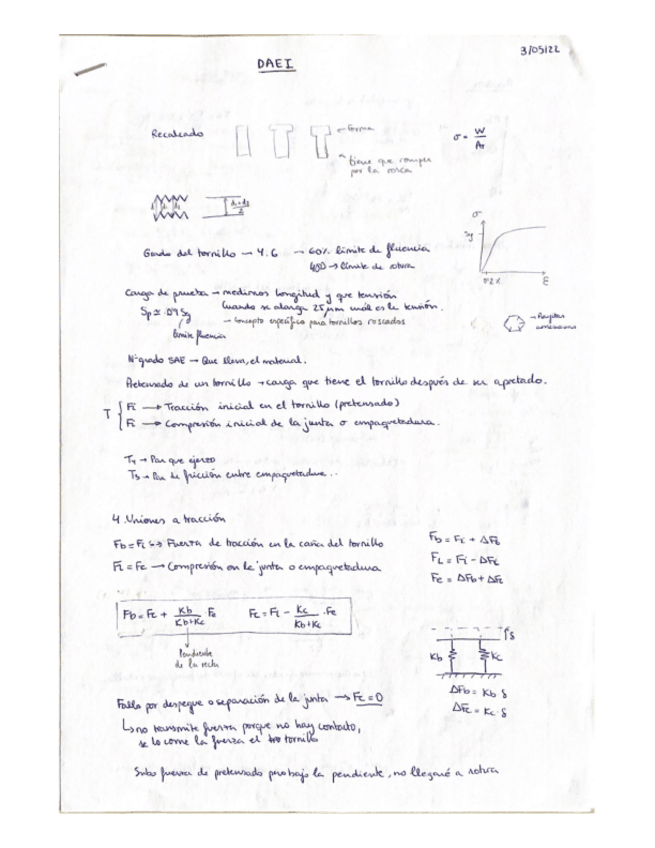 3/05/22
DAEI
Recalcado
← forma
tiene que romper
por la rosca
σ = W/Ar
σ
Sy
0.2%
ε
Grado del tornillo → 4.6 → 60% límite de fluencia
400 → límite de rotura
Carga de prueba → medimos longitud y que tensión
Sp ≃ 0.9 Sy
cuando se alarga 25 μm cual es la tensión.
→ Concepto específico para tornillos roscados
límite fluencia
Nº grado SAE → Que lleva, el material.
Pretensado de un tornillo → carga que tiene el tornillo después de ser apretado.
T { Fi → Tracción inicial en el tornillo (pretensado)
Fi → Compresión inicial de la junta o empaquetadura.
T1 → Par que ejerzo
Ts → Par de fricción entre empaquetadura..
4. Uniones a tracción
Fb = Fi → Fuerza de tracción en la caña del tornillo
Fi = Fc → Compresión en la junta o empaquetadura
Fb = Fi + ΔFb
Fc = Fi - ΔFc
Fe = ΔFb + ΔFc
Fb = Fi + Kb/(Kb+Kc) · Fe
Fc = Fi - Kc/(Kb+Kc) · Fe
Pendiente
de la recta
δ
Kb
Kc
ΔFb = Kb · δ
ΔFc = Kc · δ
Fallo por despegue o separación de la junta → Fc = 0
↳ no transmite fuerza porque no hay contacto,
se lo come la fuerza el tornillo
Subo fuerza de pretensado pero bajo la pendiente, no llegaré a rotura